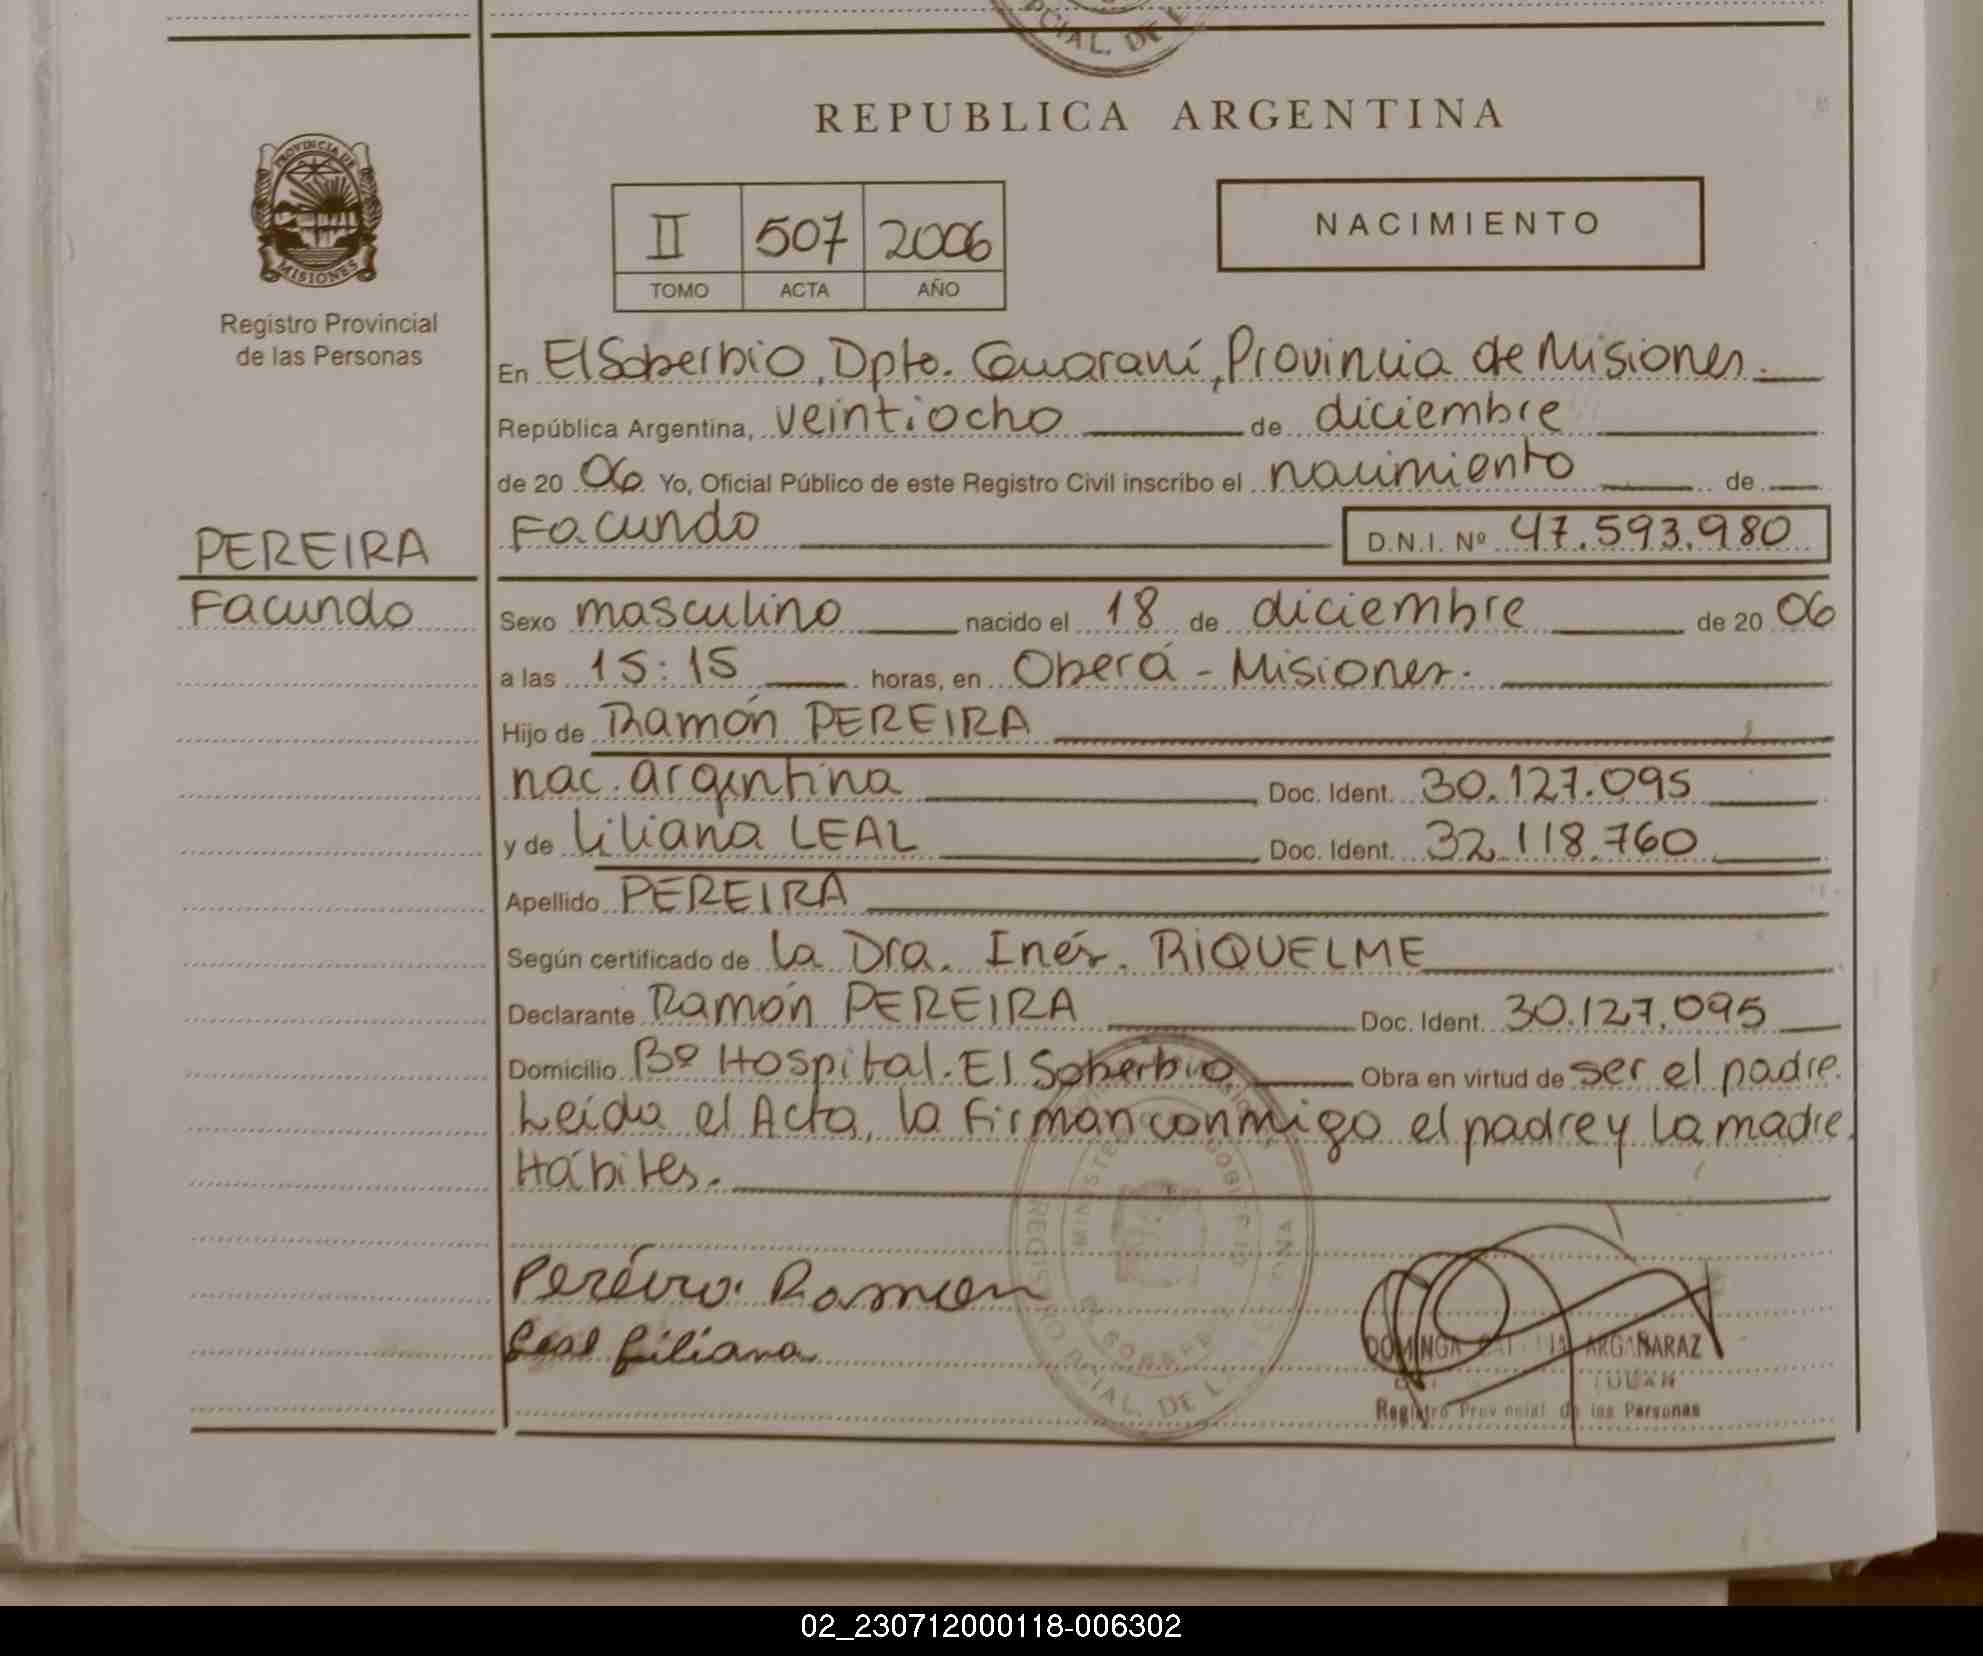 PCIAL. DE L
REPUBLICA ARGENTINA
PROVINCIA DE
MISIONES
Registro Provincial
de las Personas
II 507 2006
TOMO ACTA AÑO
NACIMIENTO
En El Soberbio, Dpto. Guaraní, Provincia de Misiones.
República Argentina, veintiocho de diciembre
de 20 06 Yo, Oficial Público de este Registro Civil inscribo el nacimiento de
PEREIRA
Facundo
Facundo D.N.I. Nº 47.593.980
Sexo masculino nacido el 18 de diciembre de 20 06
a las 15:15 horas, en Oberá - Misiones.
Hijo de Ramón PEREIRA
nac. argentina Doc. Ident. 30.127.095
y de Liliana LEAL Doc. Ident. 32.118.760
Apellido PEREIRA
Según certificado de la Dra. Inés. RIQUELME
Declarante Ramón PEREIRA Doc. Ident. 30.127.095
Domicilio Bº Hospital. El Soberbio Obra en virtud de ser el padre.
Leída el Acta, la firman conmigo el padre y la madre.
Hábiles.
Pereira Ramon
Leal Liliana
DOMINGA ARGAÑARAZ
Registro Provincial de las Personas
PCIAL. DE L
02_230712000118-006302